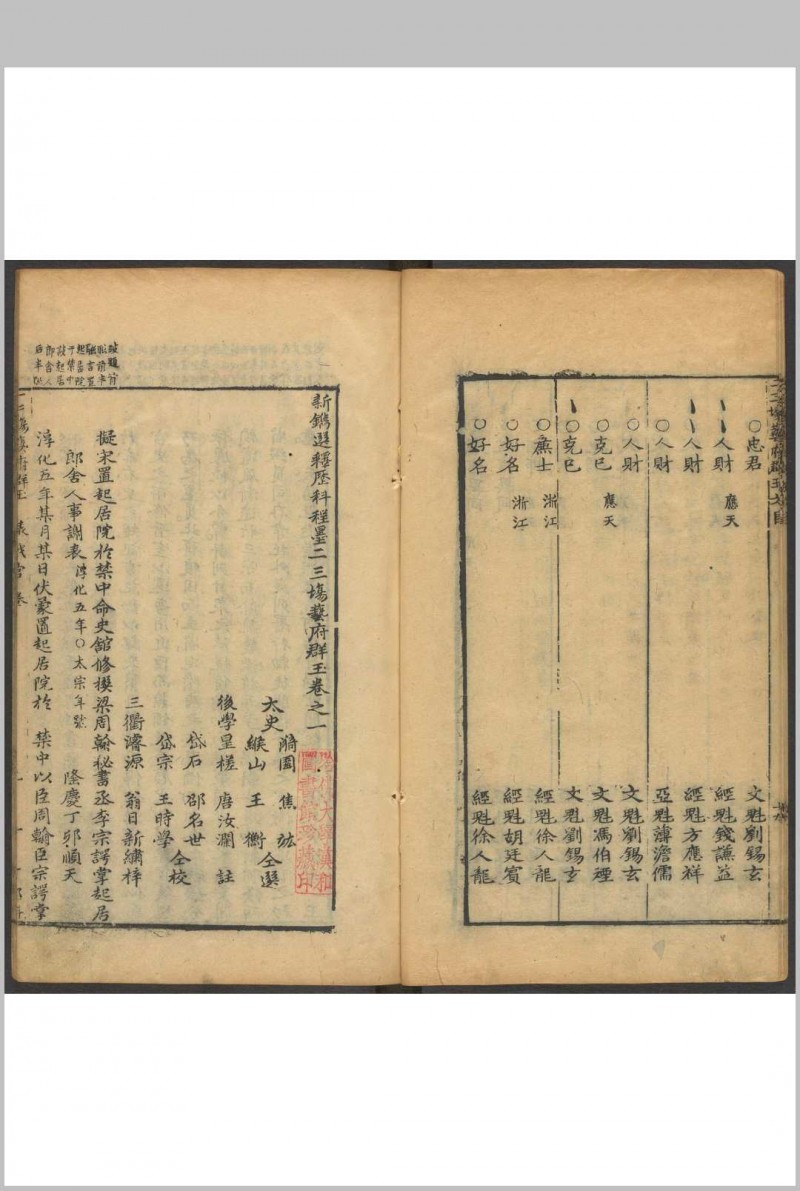 ○忠君 文魁劉錫玄
丶人財 應天 經魁錢謙益
丶丶人財 經魁方應祥
○人財 亞魁薄澹儒
○人財 文魁劉錫玄
○克己 應天 文魁馮伯禋
丶○克己 文魁劉錫玄
○廉士 浙江 經魁徐人龍
○好名 浙江 經魁胡廷賓
○好名 經魁徐人龍
新鐫選釋歷科程墨二三塲藝府群玉卷之一
太史
漪園 焦 竑
緱山 王 衡
仝選
後學星槎 唐汝瀾 註
岱石 邵名世
岱宗 王時學
仝校
三衢濬源 翁日新繡梓
擬宋置起居院於禁中命史舘修撰梁周翰秘書丞李宗諤掌起居
郎舍人事謝表 淳化五年○太宗年號 隆慶丁卯順天
淳化五年某月某日伏蒙置起居院於 禁中以臣周翰臣宗諤掌